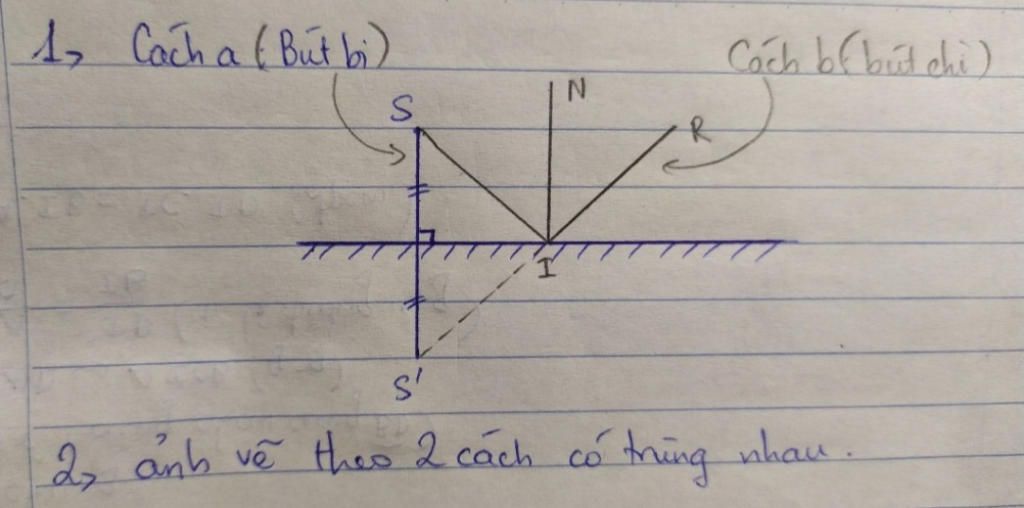 1, Cách a (Bút bi)
Cách b (bút chì)
S
N
R
I
S'
2, ảnh vẽ theo 2 cách có trùng nhau.